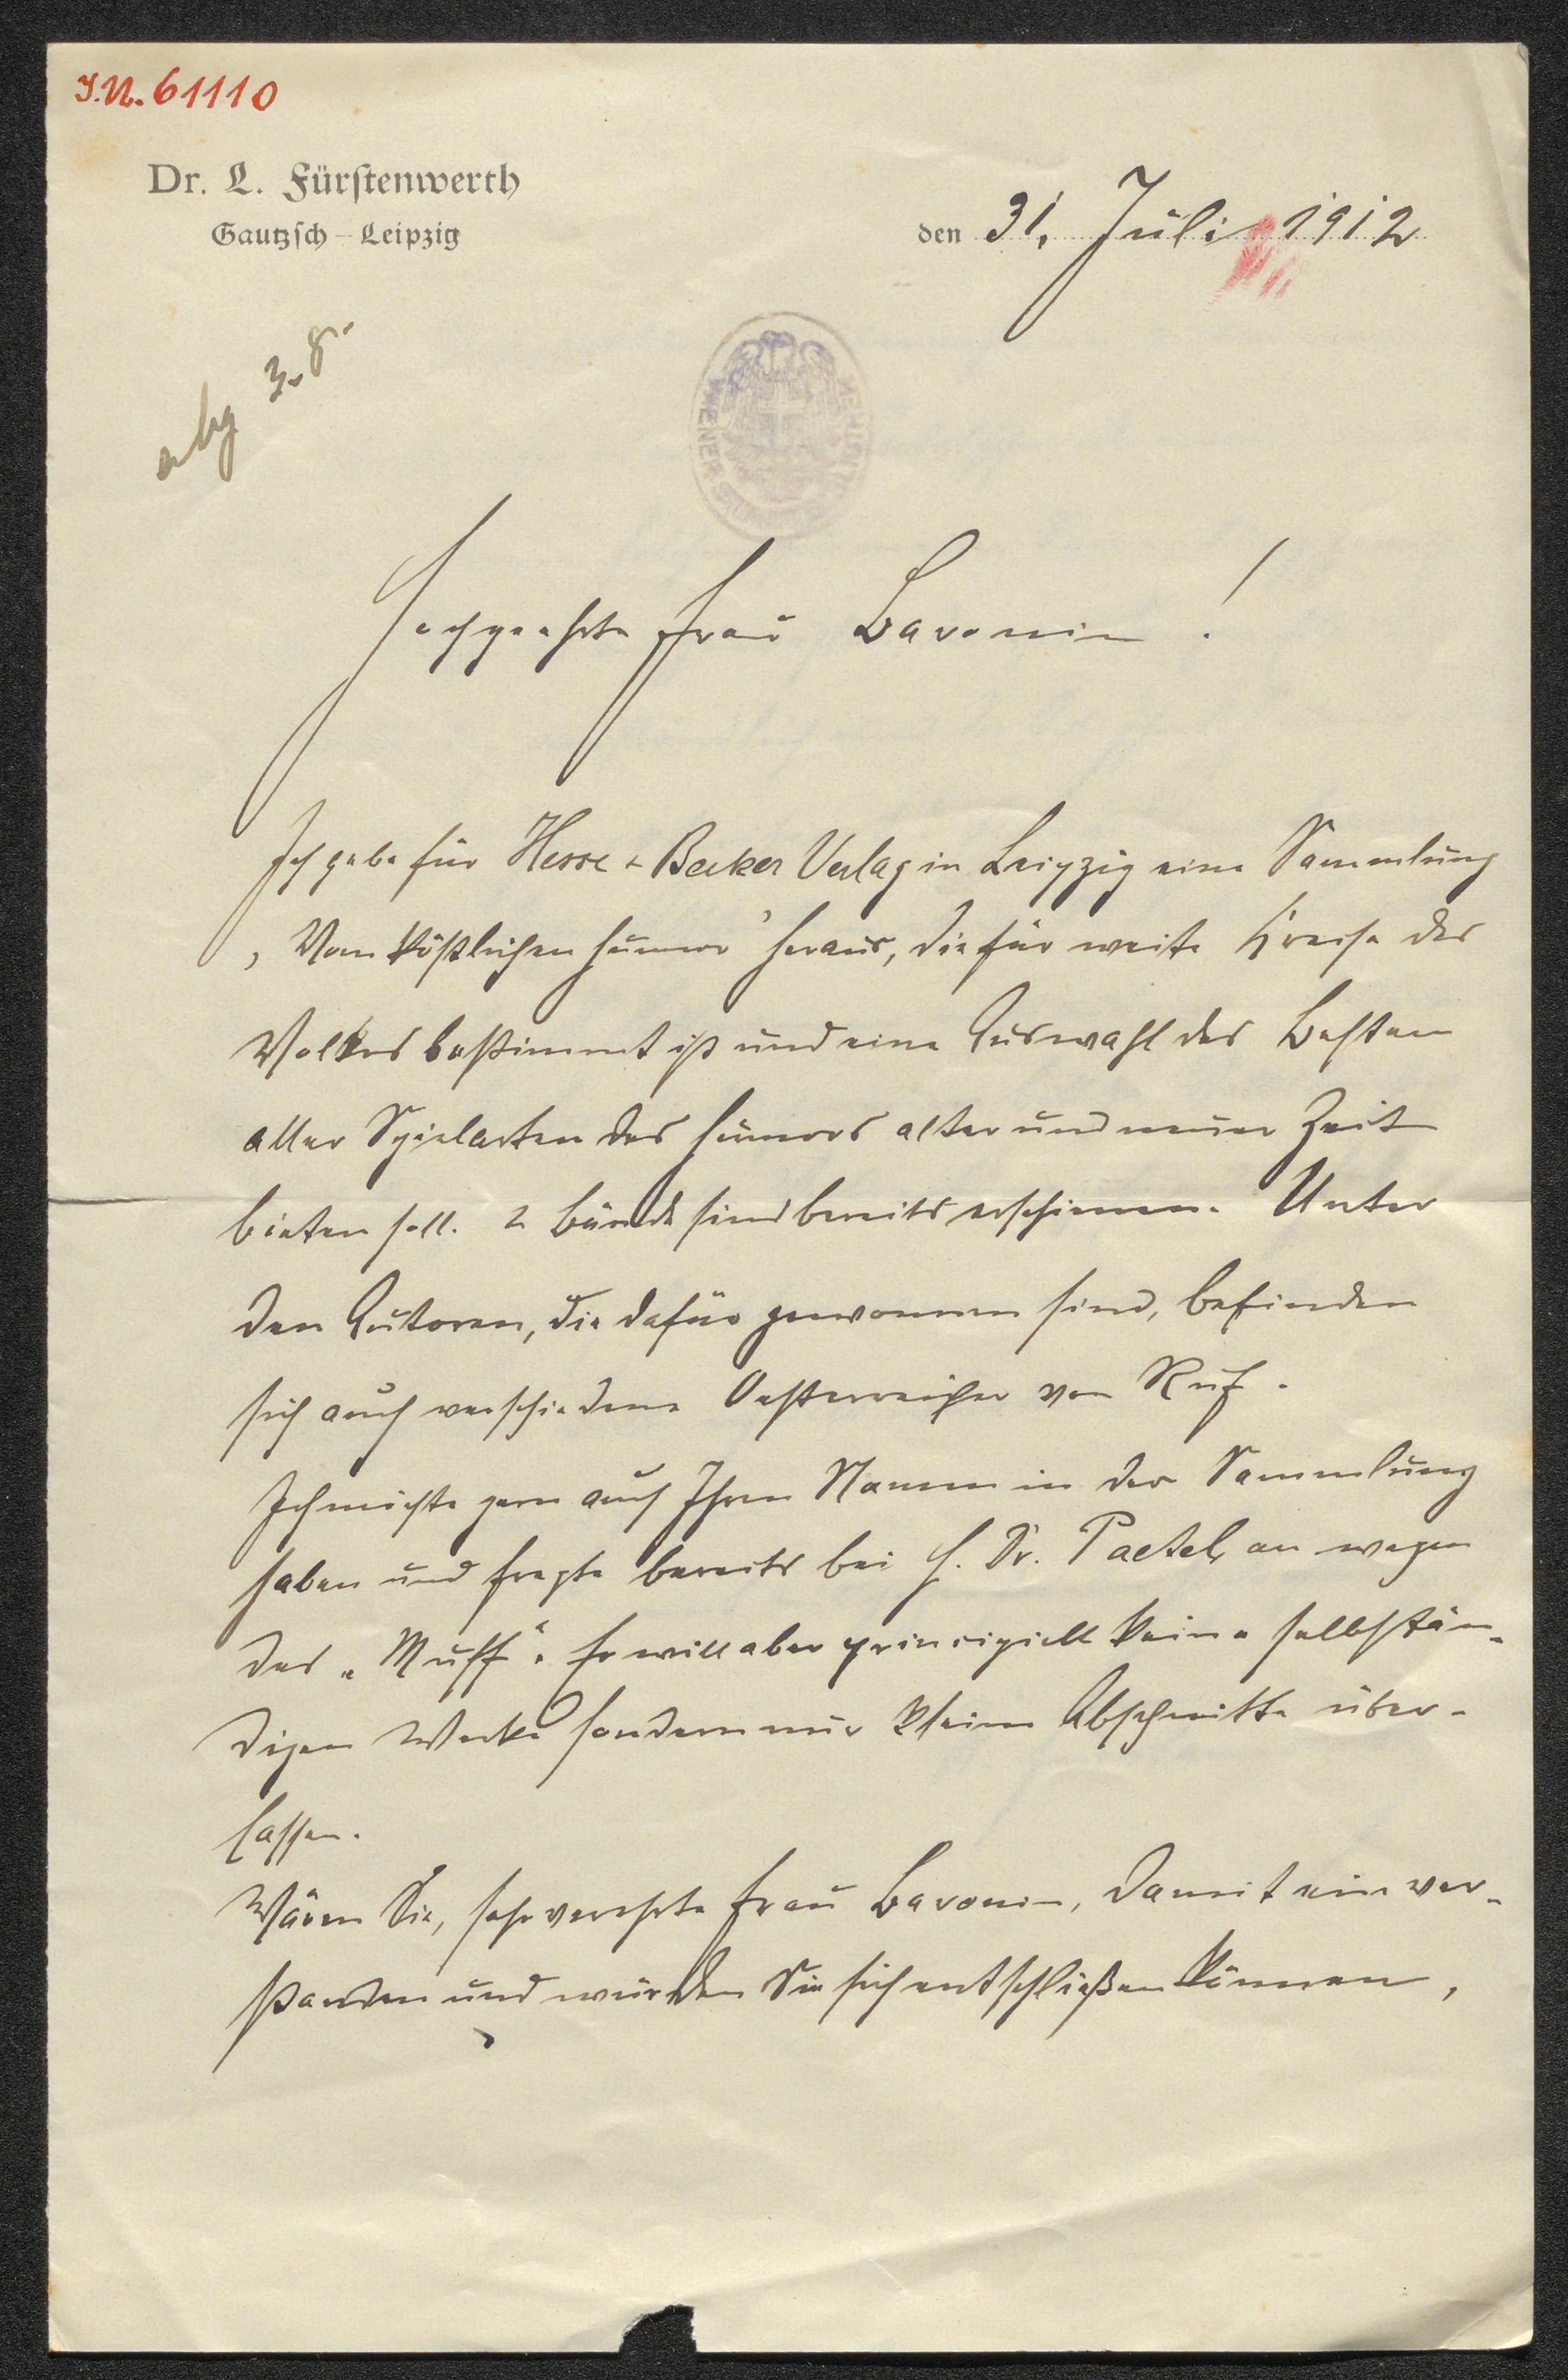 I.N. 61110
Dr. L. Fürstenwerth
Gautzsch-Leipzig
den 31. Juli 1912
abg 3.8.
Hochgeehrte Frau Baronin!
Ich gebe für Hesse & Becker Verlag in Leipzig eine Sammlung
„Vom köstlichen Humor" heraus, die für weite Kreise des
Volkes bestimmt ist und eine Auswahl des Besten
aller Spielarten des Humors alter und neuer Zeit
bieten soll. 2 Bände sind bereits erschienen. Unter
den Autoren, die dafür gewonnen sind, befinden
sich auch verschiedene Oesterreicher von Ruf.
Ich möchte gern auch Ihren Namen in der Sammlung
haben und fragte bereits bei H. Dr. Paetel, an wegen
des „Muff". Er will aber principiell keine selbstän-
digen Werke sondern nur kleine Abschnitte über-
lassen.
Wären Sie, sehr verehrte Frau Baronin, damit einver-
standen und würden Sie sich entschließen können,